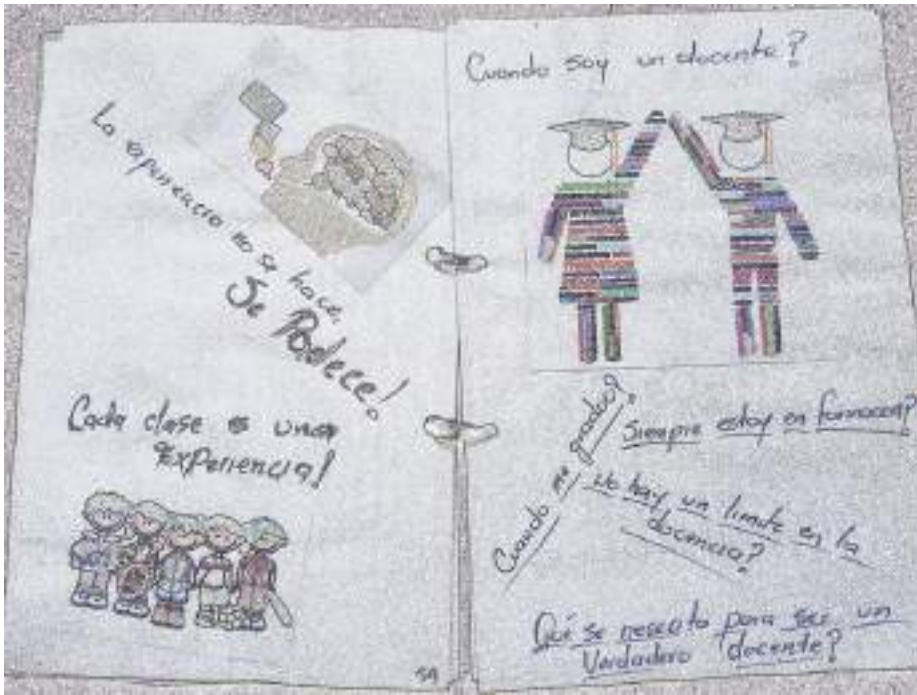 La experiencia no se hace,
Se Padece!
Cada clase es una
Experiencia!
59
Cuando soy un docente?
Cuando me gradúo?
Siempre estoy en formación?
No hay un limite en la
docencia?
Qué se necesita para ser un
Verdadero docente?